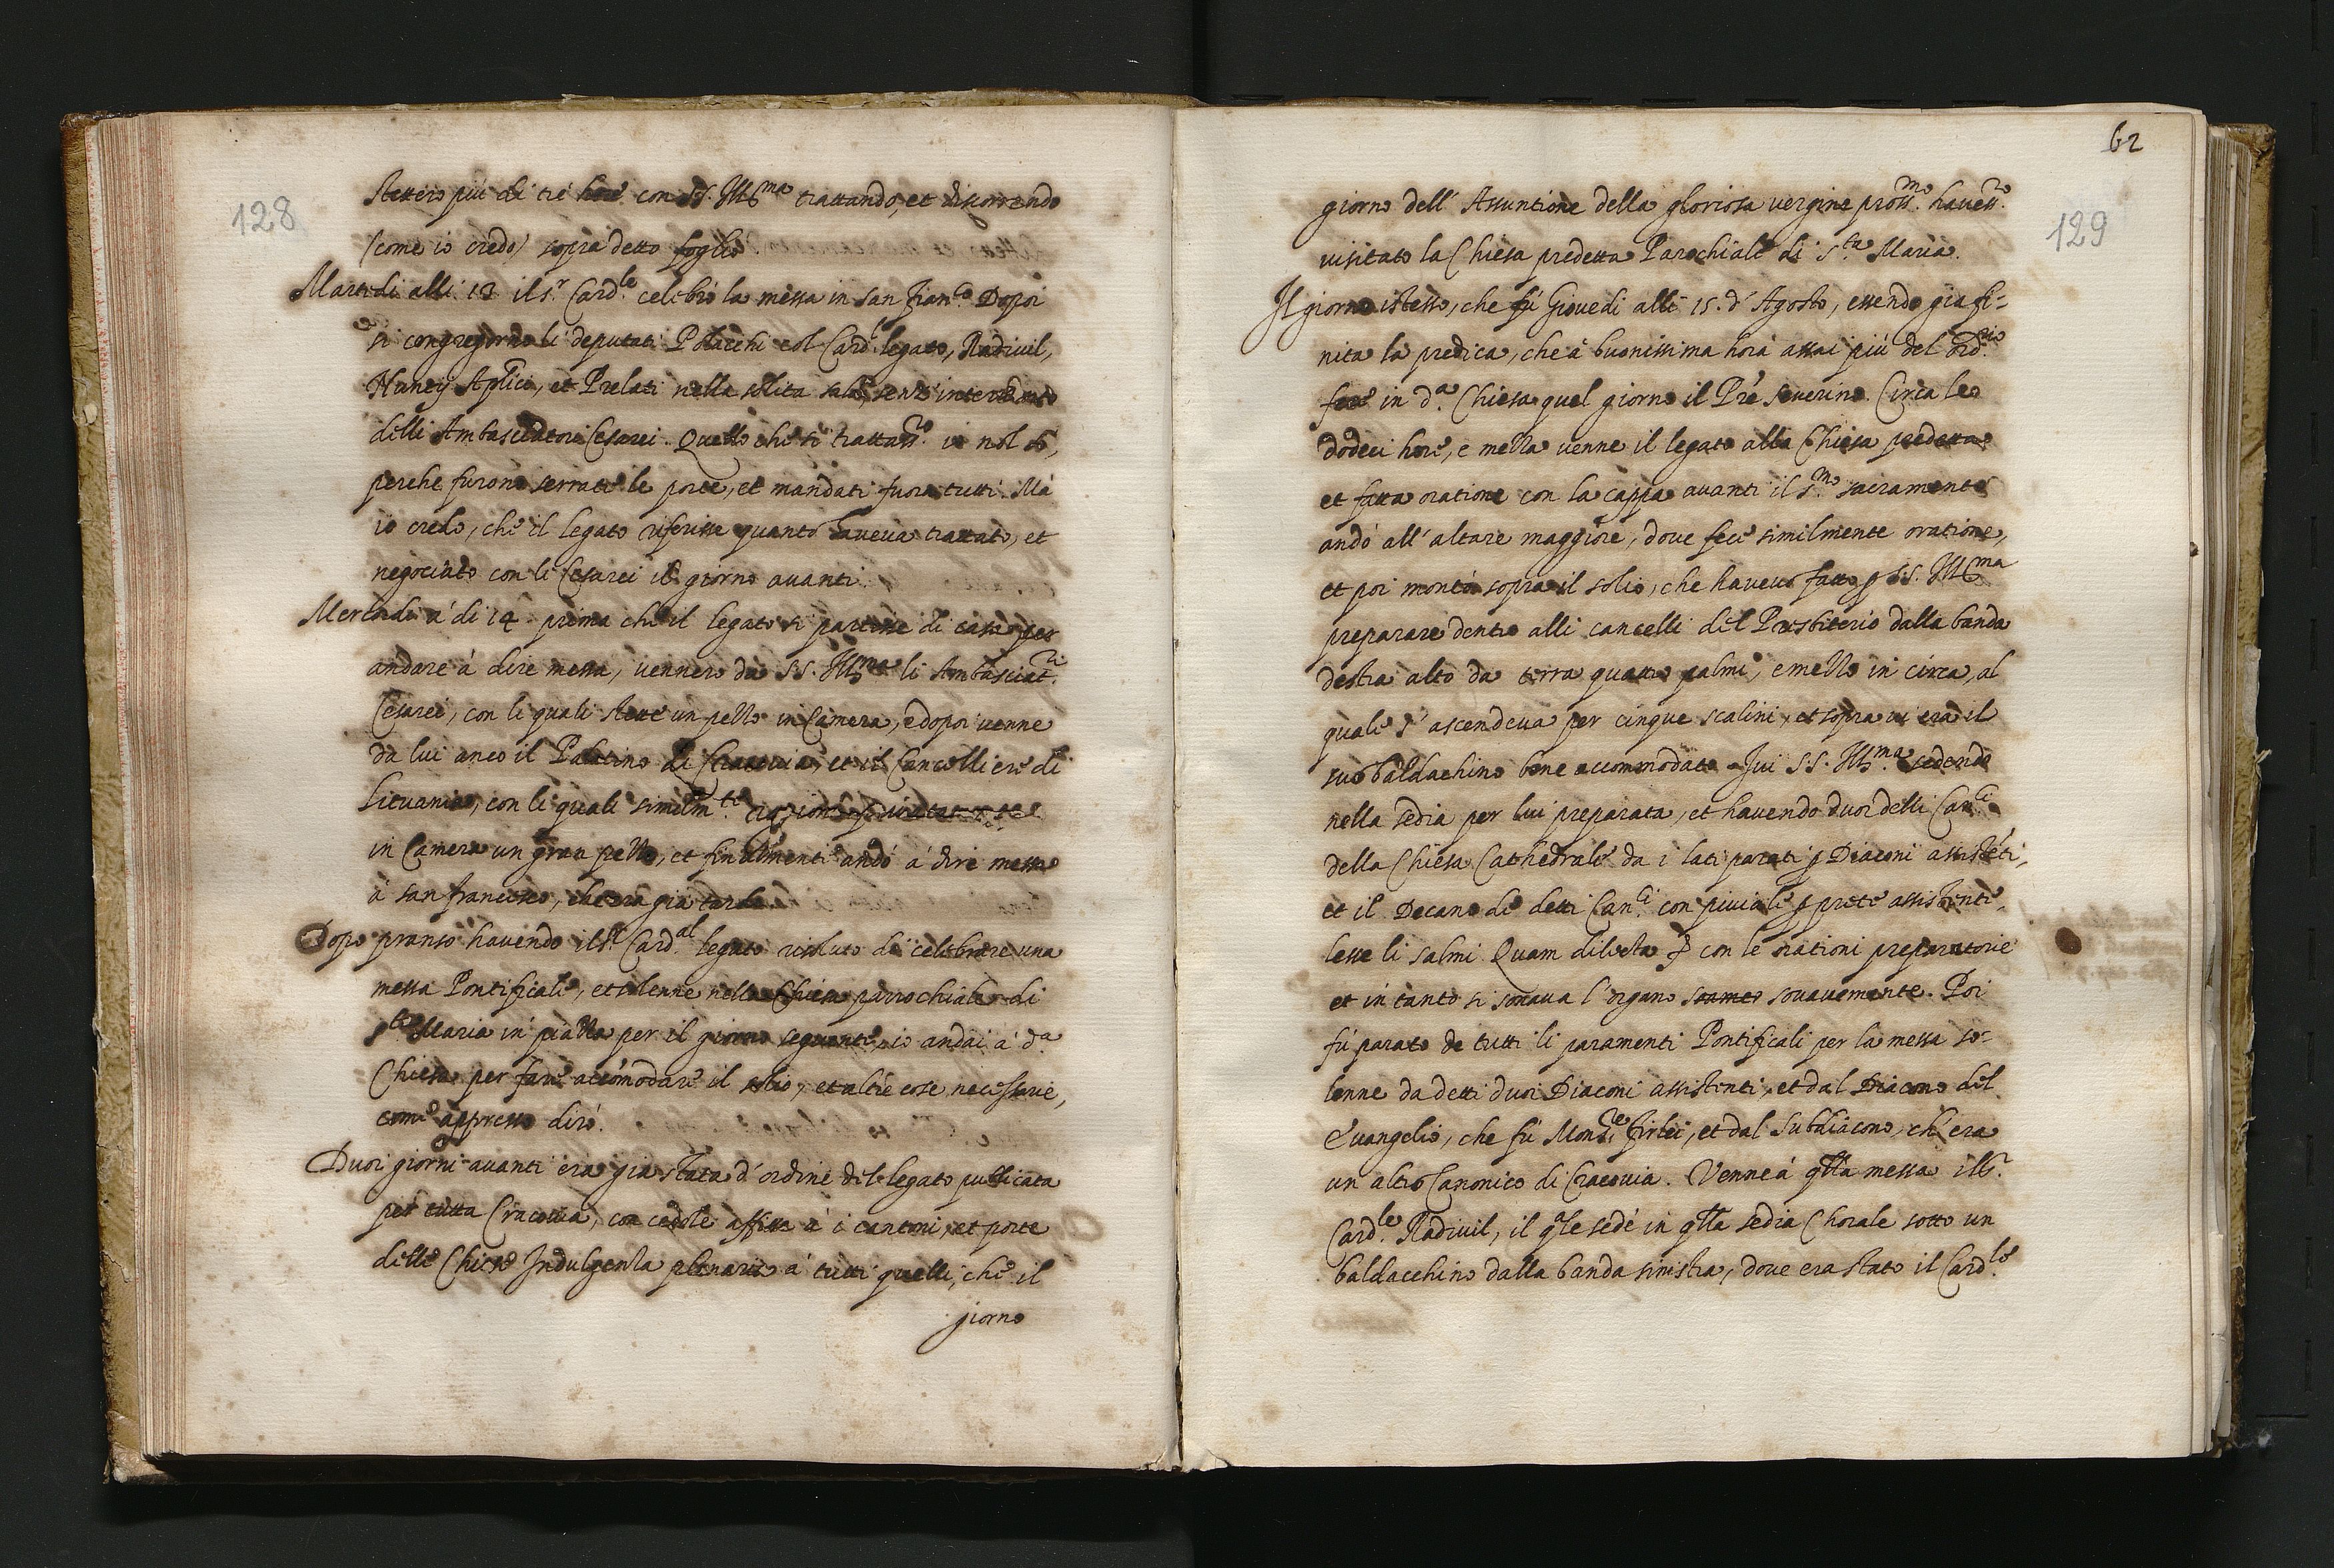 128
stettero più di tré hore con SS. Ill.ma trattando, et discorrendo
(come io credo) sopra detto foglio.
Martedi alli 13 il s.r Card.le celebrò la messa in san Fran.co Dopoi
si congregorno li deputati Polacchi col Card.l legato, Radivil,
Nuncij Aplici, et Prelati nella solita sala, senz' intervento
delli Ambasciatori Cesarei. Quello che si trattass.ro io nol só,
perche furono serrate le porte, et mandati fuora tutti. Má
io credo, che il legato riferisse quanto haveva trattato, et
negociato con li Cesarei il giorno avanti.
Mercordi á di 14 prima che il legato si partisse di casa per
andare á dire messa, vennero da SS. Ill.ma li Ambasciat.ri
Cesarei, con li quali stette un pezzo in Camera, e dopoi venne
da lui anco il Palatino di Cracovia, et il Cancelliere di
Lituania, con li quali similm.te
in Camera un gran pezzo, et finalmente andó á dire messa
á san francesco, che era gia tardo.
Dopo pranso havendo il s.r Card.al legato risoluto di celebrare una
messa Pontificale, et solenne nella Chiesa parrochiale di
s.ta Maria in piazza per il giorno seguente, io andai á d.a
Chiesa per fare accómodare il solio, et altre cose necessarie,
come appresso dirò.
Duoi giorni avanti era gia stata d'ordine del legato publicata
per tutta Cracovia, con cedole affisse á i cantoni, et porte
delle Chiese Indulgenza plenaria á tutti quelli, che il
giorno
62
129
giorno dell' Assuntione della gloriosa vergine pross.mo havess.ro
visitato la Chiesa predetta Parochiale di S.ta Maria.
Il giorno istesso, che fú Giovedi alli 15. d'Agosto, essendo gia fi-
nita la predica, che á buonissima hora assai più del ord.rio
fece in d.a Chiesa quel giorno il Pré Severino. Circa le
dodeci hore, e mezza venne il legato alla Chiesa predetta
et fatta oratione con la cappa avanti il S.mo sacramento
andó all' altare maggiore, dove fece similmente oratione,
et poi montó sopra il solio, che havevo fatto p SS. Ill.ma
preparare dentro alli cancelli del Presbiterio dalla banda
destra alto da terra quatro palmi, e mezzo in circa, al
quale s'ascendeva per cinque scalini, et sopra vi era il
suo baldachino bene accommodato. Ivi S.S. Ill.ma sedendo
nella sedia per lui preparata, et havendo duoi delli Can.ci
della Chiesa Cathedrale da i lati parati p Diaconi assistéti,
et il Decano de detti Can.ci con piviale p prete assistente,
lesse li salmi Quam dilecta con le orationi preparatorie
et in tanto si sonava l'organo soavemente. Poi
fú parato de tutti li paramenti Pontificali per la messa so-
lenne da detti duoi Diaconi assistenti, et dal Diacono del
Evangelio, che fú Mons.re firlei, et dal Subdiacono, ch'era
un altro Canonico di Cracovia. Venne á qlla messa ill.r
Card.le Radivil, il qle sedé in qlla sedia Chorale sotto un
baldacchino dalla banda sinistra, dove era stato il Card.le